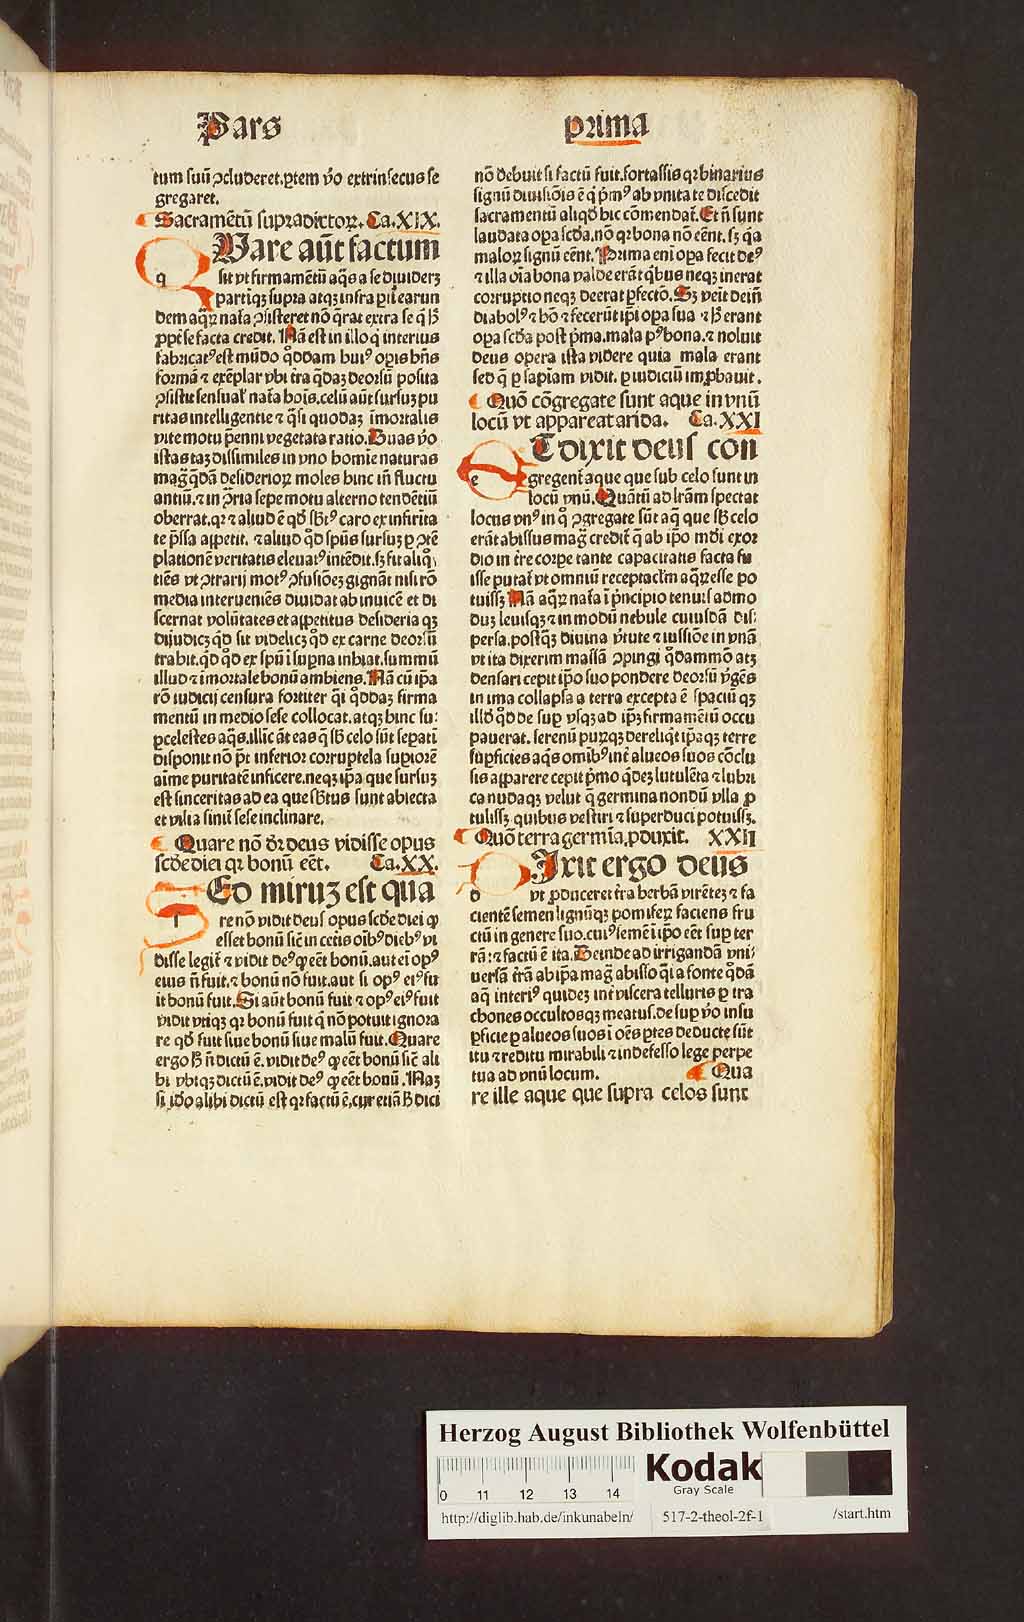 Pars
prima
tum suũ ꝯcluderet. ꝑtem ṽo extrinsecus se
gregaret.
Sacramẽtũ supradictoꝝ. Ca. XIX.
QUare aũt factum
sit vt firmamẽtũ aq̃s a se diuiderꝫ
partiqꝫ supra atqꝫ infra
dem aq̃ꝝ nat̃a ꝯsisteret nõ q̃rat extra se q̃ hͦ
ꝓpt̃ se facta credit. Nã est in illo q̃ interius
fabricatꝰ est mũdo q̊ddam huiꝰ opis hñs
formã ⁊ exẽplar vbi tr̃a q̃daꝫ deorsũ posita
ꝯsistit sensual' nat̃a hoĩs. celũ aũt sursuꝫ pu
ritas intelligentie ⁊ q̃si quodaꝫ ĩmortalis
vite motu ꝑenni vegetata ratio. Duas ṽo
istas taꝫ dissimiles in vno homĩe naturas
mag̃ q̃dã desiderioꝝ moles hinc iñ fluctu
antiũ. ⁊ in ꝯ̃ria sepe motu alterno tendẽtiũ
oberrat. qꝛ ⁊ aliud ẽ qd̃ sb̃tꝰ caro ex infirita
te p̃ssa appetit. ⁊ aliud qd̃ spũs sursuꝫ ꝑ ꝯtẽ
plationẽ veritatis eleuatꝰ intẽdit. sꝫ fit aliq̊
tiẽs vt ꝯtrarij motꝰ ꝯfusiõeꝫ gignãt nisi rõ
media interueniẽs diuidat ab inuicẽ et di
scernat volũtates et appetitus desideria qꝫ
dijudicꝫ qd̃ sit videlicꝫ qd̃ ex carne deorsũ
trahit. qd̃ qd̃ ex spũ ĩ suꝑna inhiat. summũ
illud ⁊ ĩmortale bonũ ambiens. Nã cũ ip̃a
rõ iudicij censura fortiter q̃i q̊ddaꝫ firma
mentũ in medio sese collocat. atqꝫ hinc su:
ꝑcelestes aq̃s. illic ãt eas q̃ sb̃ celo sũt seꝑatĩ
disponit nõ p̃t inferior corruptela supiorẽ
aĩme puritatẽ inficere. neqꝫ ip̃a que sursuꝫ
est sinceritas ad ea que sb̃tus sunt abiecta
et vilia sinũ sese inclinare.
Quare nõ dr̃ deus vidisse opus
scd̃e diei qꝛ bonũ eẽt. Ca. XX.
SEd miruꝫ est qua
re nõ vidit deus opus scd̃e diei ꝙ
esset bonũ sic̃ in cetis oĩbꝰ diebꝰ vi
disse legit̃ ⁊ vidit deꝰ ꝙ eẽt bonũ. aut ei opꝰ
eius ñ fuit. ⁊ bonũ nõ fuit. aut si opꝰ eiꝰ fu
it bonũ fuit. Si aũt bonũ fuit ⁊ opꝰ eiꝰ fuit
vidit vtiqꝫ qꝛ bonũ fuit q̃ nõ potuit ignora
re qd̃ fuit siue bonũ siue malũ fuit. Quare
ergo hͦ ñ dictũ ẽ. vidit deꝰ ꝙ eẽt bonũ sic̃ ali
bi vbiqꝫ dictũ ẽ. vidit deꝰ ꝙ eẽt bonũ. Naꝫ
si iõo alibi dictũ est qꝛ factũ ẽ, cur etiã hͦ dici
nõ debuit si factũ fuit. fortassis qꝛ binarius
signũ diuisiõis ẽ q̃ p̃mꝰ ab vnitate discedit
sacramentũ aliqd̃ hic cõmendat̃. Et ñ sunt
laudata oꝑa scd̃a. nõ qꝛ bona nõ eẽnt. sꝫ q̃a
maloꝝ signũ eẽnt. Prima eni oꝑa fecit deꝰ
⁊ illa oĩa bona valde erãt q̃bus neqꝫ inerat
corruptio neqꝫ deerat ꝑfectõ. Sꝫ veit deiñ
diabolꝰ ⁊ hõ ⁊ fecerũt ip̃i oꝑa sua ⁊ hͦ erant
oꝑa scd̃a post p̃ma. mala pꝰ bona. ⁊ noluit
deus opera ista videre quia mala erant
sed q̃ ꝑ sap̃iam vidit. ꝑ iudiciũ imꝓbauit.
Quõ cõgregate sunt aque in vnũ
locũ vt appareat arida. Ca. XXI
ET dixit deus con
gregent̃ aque que sub celo sunt in
locũ vnũ. Quãtũ ad lr̃am spectat
locus vnꝰ in q̊ ꝯgregate sũt aq̃ que sb̃ celo
erãt abissus mag̃ credit̃ q̃ ab ip̃o mũdi exoꝛ
dio in tr̃e corpe tante capacitatis facta fu
isse putat̃ vt omniũ receptacĩm aq̃ꝝ esse po
tuissꝫ Nã aq̃ꝝ nat̃a ĩ p̃ncipio tenuis admo
duꝫ leuisqꝫ ⁊ in modũ nebule cuiusdã dis:
persa. postq̃ꝫ diuina ṽtute ⁊ iussiõe in vnã
vt ita dixerim massã ꝯpingi q̊dammõ atqꝫ
densari cepit ip̃o suo pondere deorsũ ṽgẽs
in ima collapsa a terra excepta ẽ spaciũ qꝫ
illd̃ qd̃ de suꝑ vsqꝫ ad ip̃ꝫ firmamẽtũ occu
pauerat. serenũ puꝝqꝫ dereliq̃t ip̃aqꝫ terre
suꝑficies aq̃s omĩbꝰ int̃ alueos suos cõclu
sis apparere cepit p̃mo q̃deꝫ lutulẽta ⁊ lubri
ca nudaqꝫ velut q̃ germina nondũ vlla ꝓ
tulissꝫ quibus vestiri ⁊ superduci potuissꝫ.
Quõ terra germĩa. ꝓduxit. XXII
DIxit ergo deus
vt ꝓduceret tr̃a herbã virẽteꝫ ⁊ fa
cientẽ semen lignũqꝫ pomiferꝫ faciens fru
ctũ in genere suo. cuiꝰ semẽ ĩ ip̃o eẽt suꝑ ter
rã: ⁊ factũ ẽ ita. Deinde ad irrigandã vni
uersã tr̃ã ab ip̃a mag̃ abisso q̃i a fonte q̃dã
aq̃ interiꝰ quideꝫ int̃ viscera telluris ꝑ tra
chones occultosqꝫ meatus. de suꝑ ṽo insu
ꝑficie ꝑ alueos suos ĩ oẽs ꝑtes deducte sũt
itu ⁊ reditu mirabili ⁊ indefesso lege perpe
tua ad vnũ locum. Qua
re ille aque que supra celos sunt
Herzog August Bibliothek Wolfenbüttel
0 11 12 13 14
Kodak
Gray Scale
http://diglib.hab.de/inkunabeln/ 517-2-theol-2f-1 /start.htm